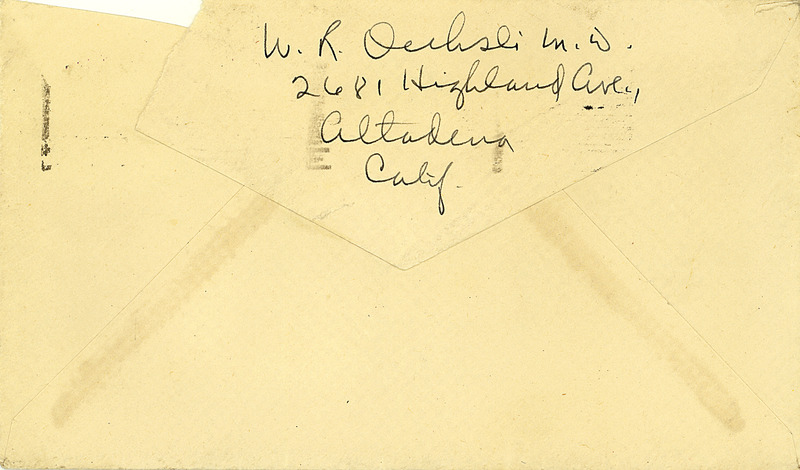 W. R. Oechsli M.D.
2681 Highland Ave.,
Altadena
Calif.